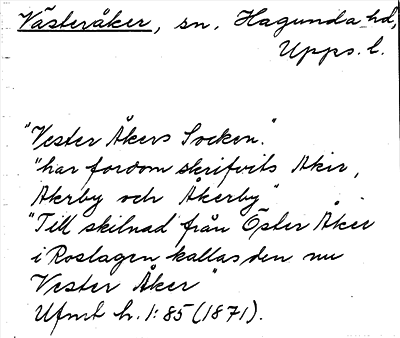 Västeråker, sn. Hagunda hd,
Upps. l.
"Vester Åkers Socken."
"har fordom skrifvits Akir,
Akrby och Åkerby"
"Till skilnad från Öster Åker
i Roslagen kallas den nu
Vester Åker"
Ufmt h. 1:85 (1871).